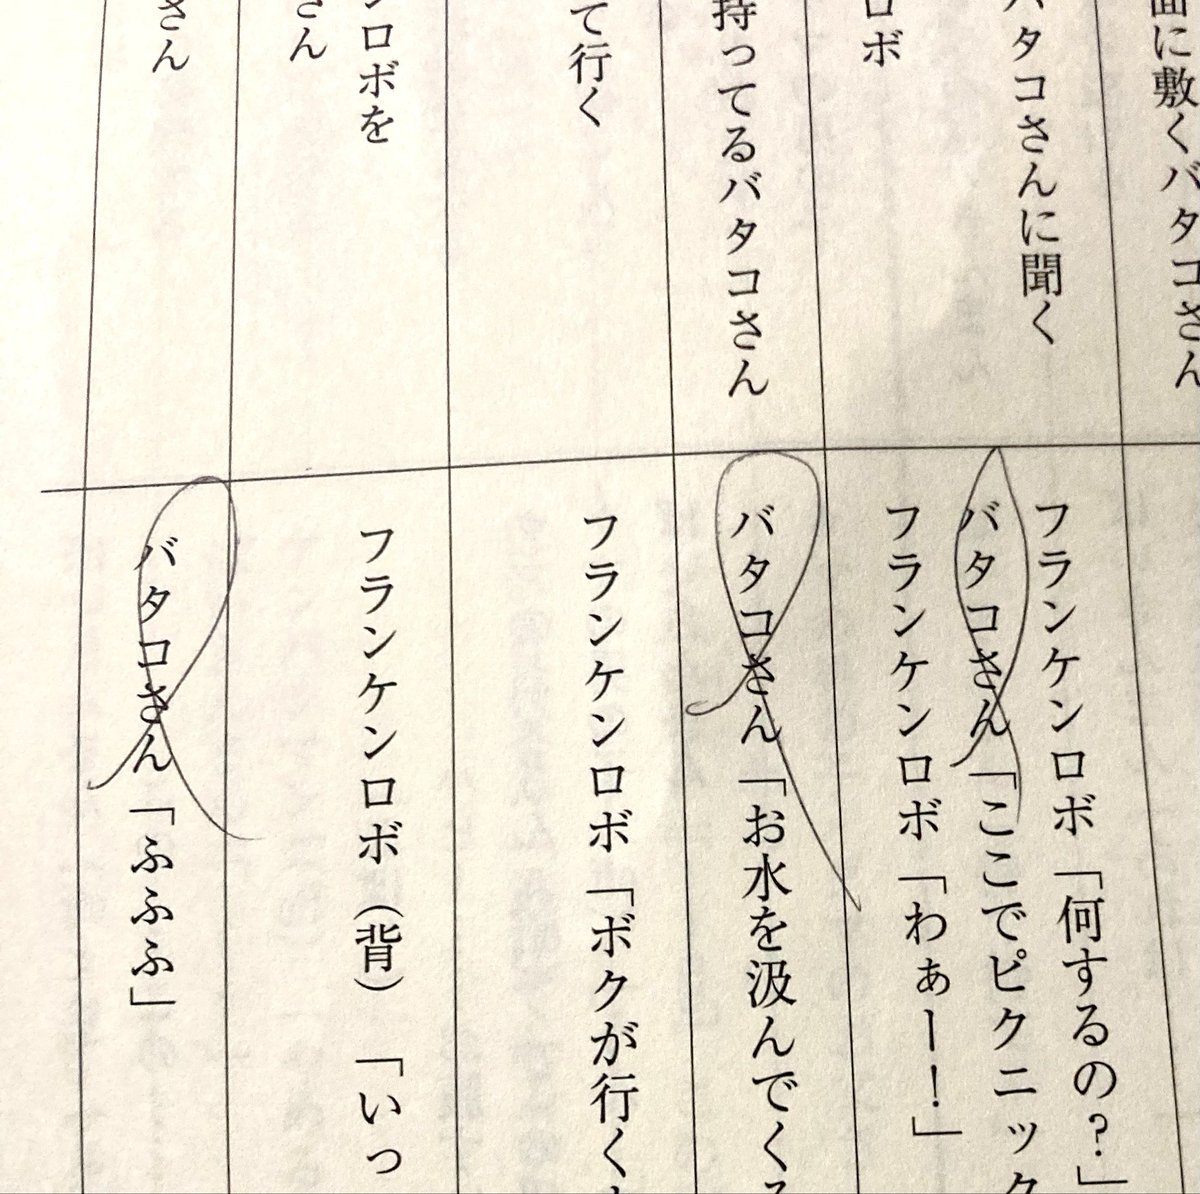 面に敷くバタコさん
バタコさんに聞く
ロボ
持ってるバタコさん
て行く
ンロボを
さん
さん
フランケンロボ「何するの？」
バタコさん「ここでピクニック
フランケンロボ「わぁー！」
バタコさん「お水を汲んでくる
フランケンロボ「ボクが行く
フランケンロボ（背）「いっ
バタコさん「ふふふ」